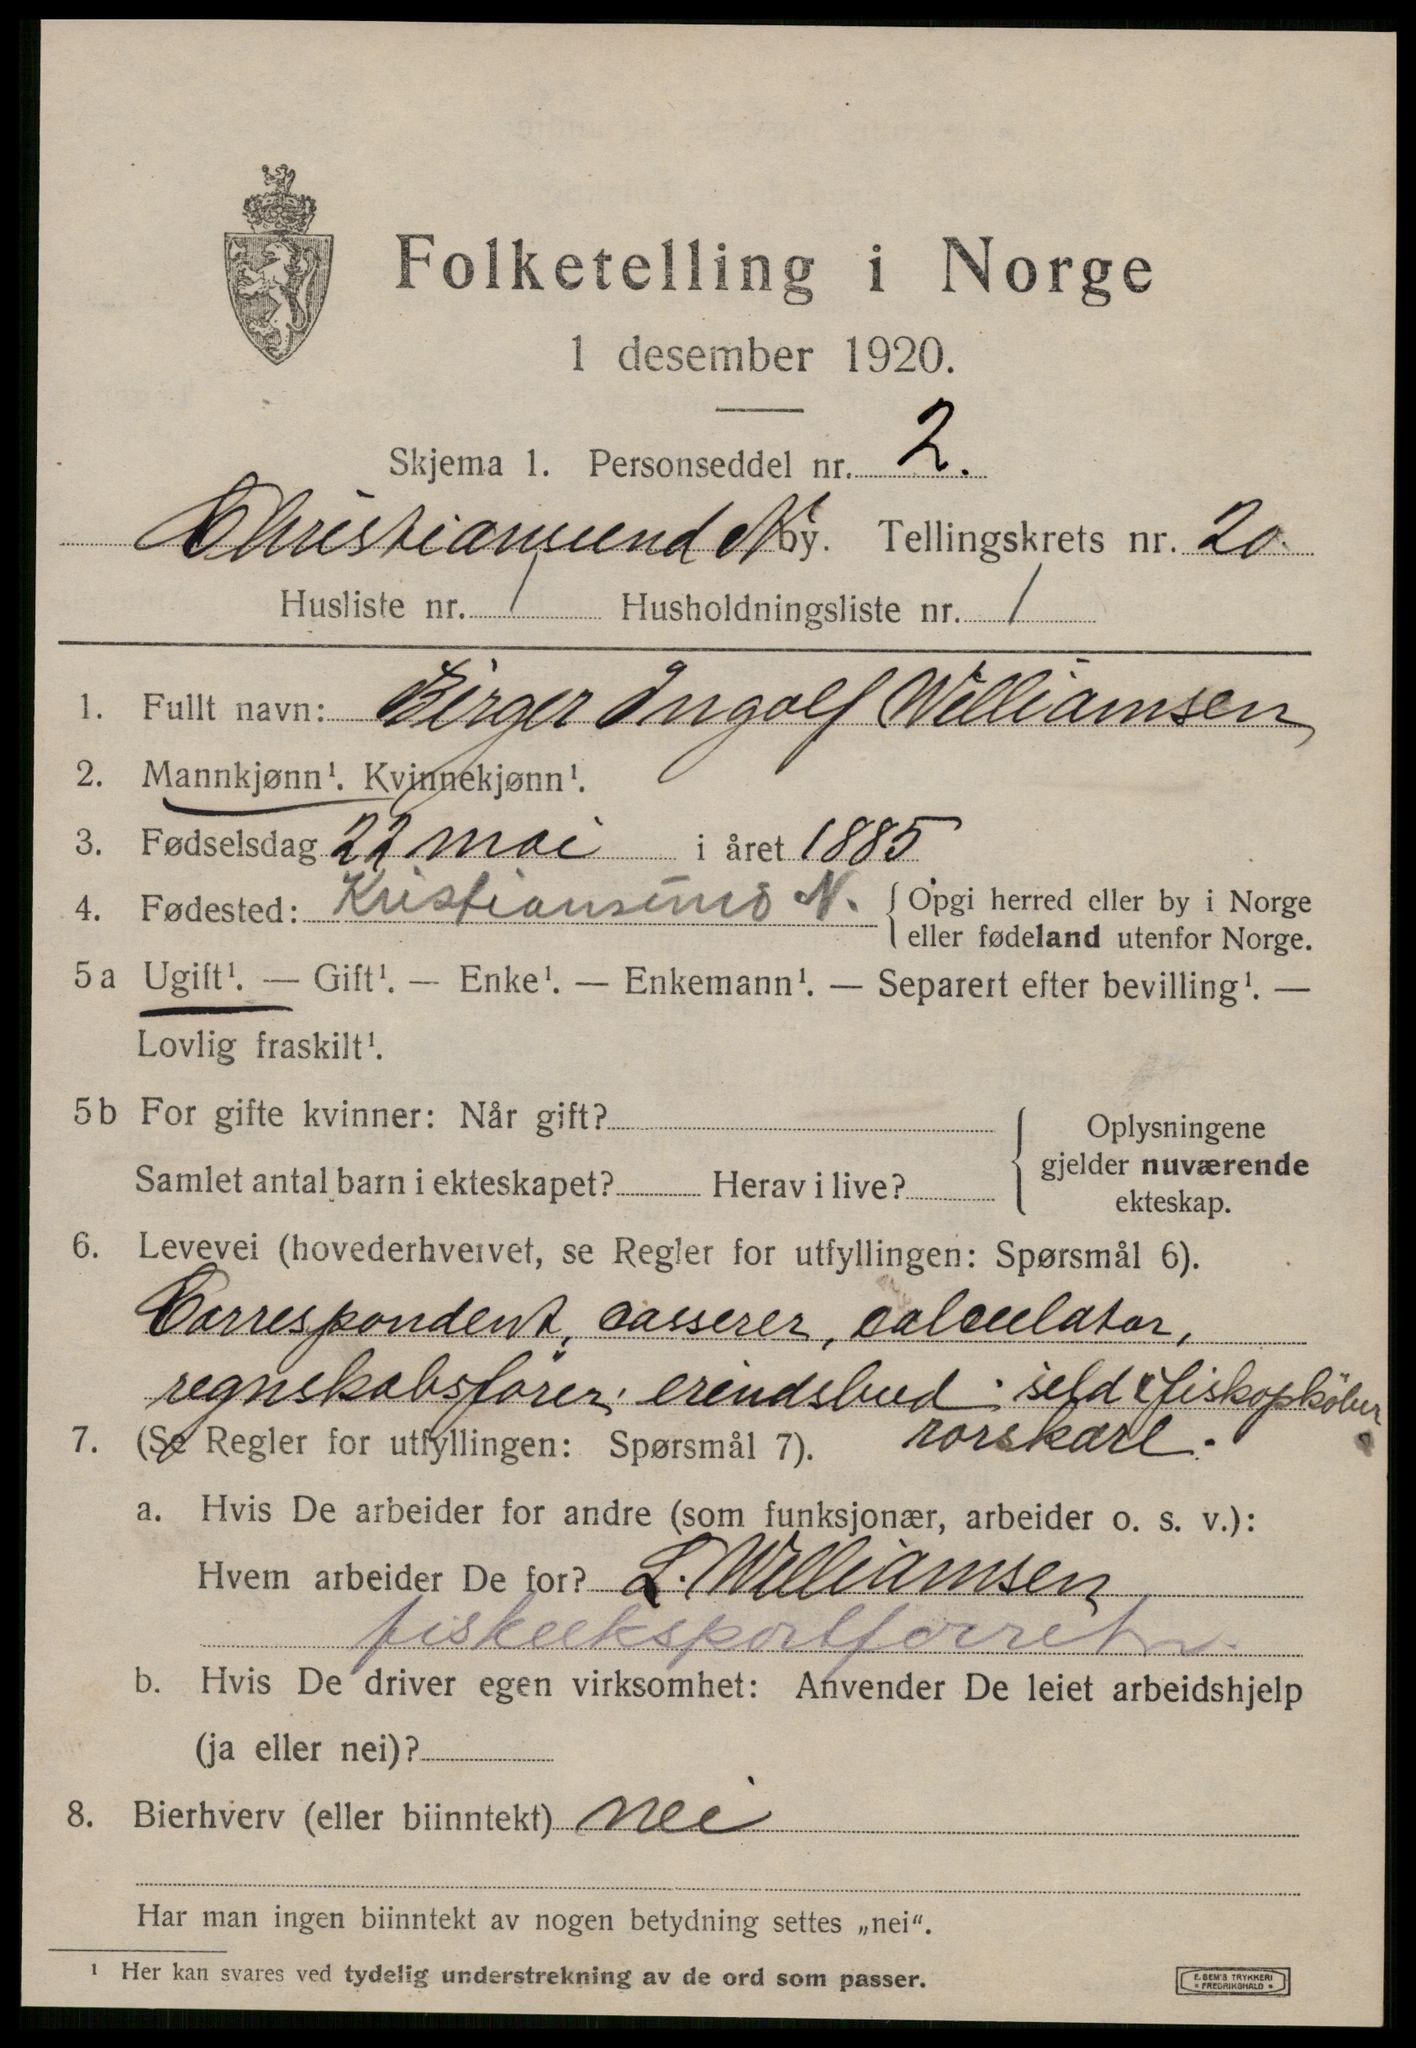 Folketelling i Norge
1 desember 1920.
Skjema 1. Personseddel nr. 2.
Christiansund N by. Tellingskrets nr. 20
Husliste nr. 1 Husholdningsliste nr. 1
1. Fullt navn: Birger Ingolf Williamsen
2. Mannkjønn¹. Kvinnekjønn¹.
3. Fødselsdag 22 mai i året 1885
4. Fødested: Kristiansund N. { Opgi herred eller by i Norge
eller fødeland utenfor Norge.
5 a Ugift¹. — Gift¹. — Enke¹. — Enkemann¹. — Separert efter bevilling¹. —
Lovlig fraskilt¹.
5 b For gifte kvinner: Når gift?
Samlet antal barn i ekteskapet? Herav i live?
Oplysningene
gjelder nuværende
ekteskap.
6. Levevei (hovederhvervet, se Regler for utfyllingen: Spørsmål 6).
Correspondent, casserer, calculator,
regnskabsfører, erindsbud, seld & fiskopköber
7. (Se Regler for utfyllingen: Spørsmål 7). rorskarl.
a. Hvis De arbeider for andre (som funksjonær, arbeider o. s. v.):
Hvem arbeider De for? L. Williamsen
fiskeeksportforretn.
b. Hvis De driver egen virksomhet: Anvender De leiet arbeidshjelp
(ja eller nei)?
8. Bierhverv (eller biinntekt) nei
Har man ingen biinntekt av nogen betydning settes „nei".
¹ Her kan svares ved tydelig understrekning av de ord som passer.
E. SEM'S TRYKKERI
FREDRIKSHALD